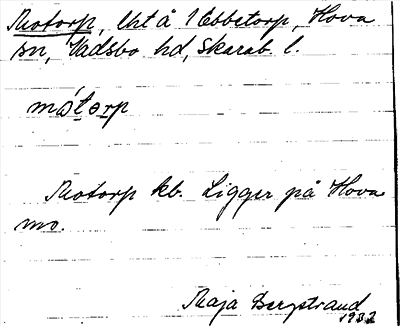 Motorp, Lht å 1 Ebbetorp, Hova
sn, Vadsbo hd, Skarab. l.
mótorp
Motorp kb. Ligger på Hova
mo.
Maja Bergstrand
1932